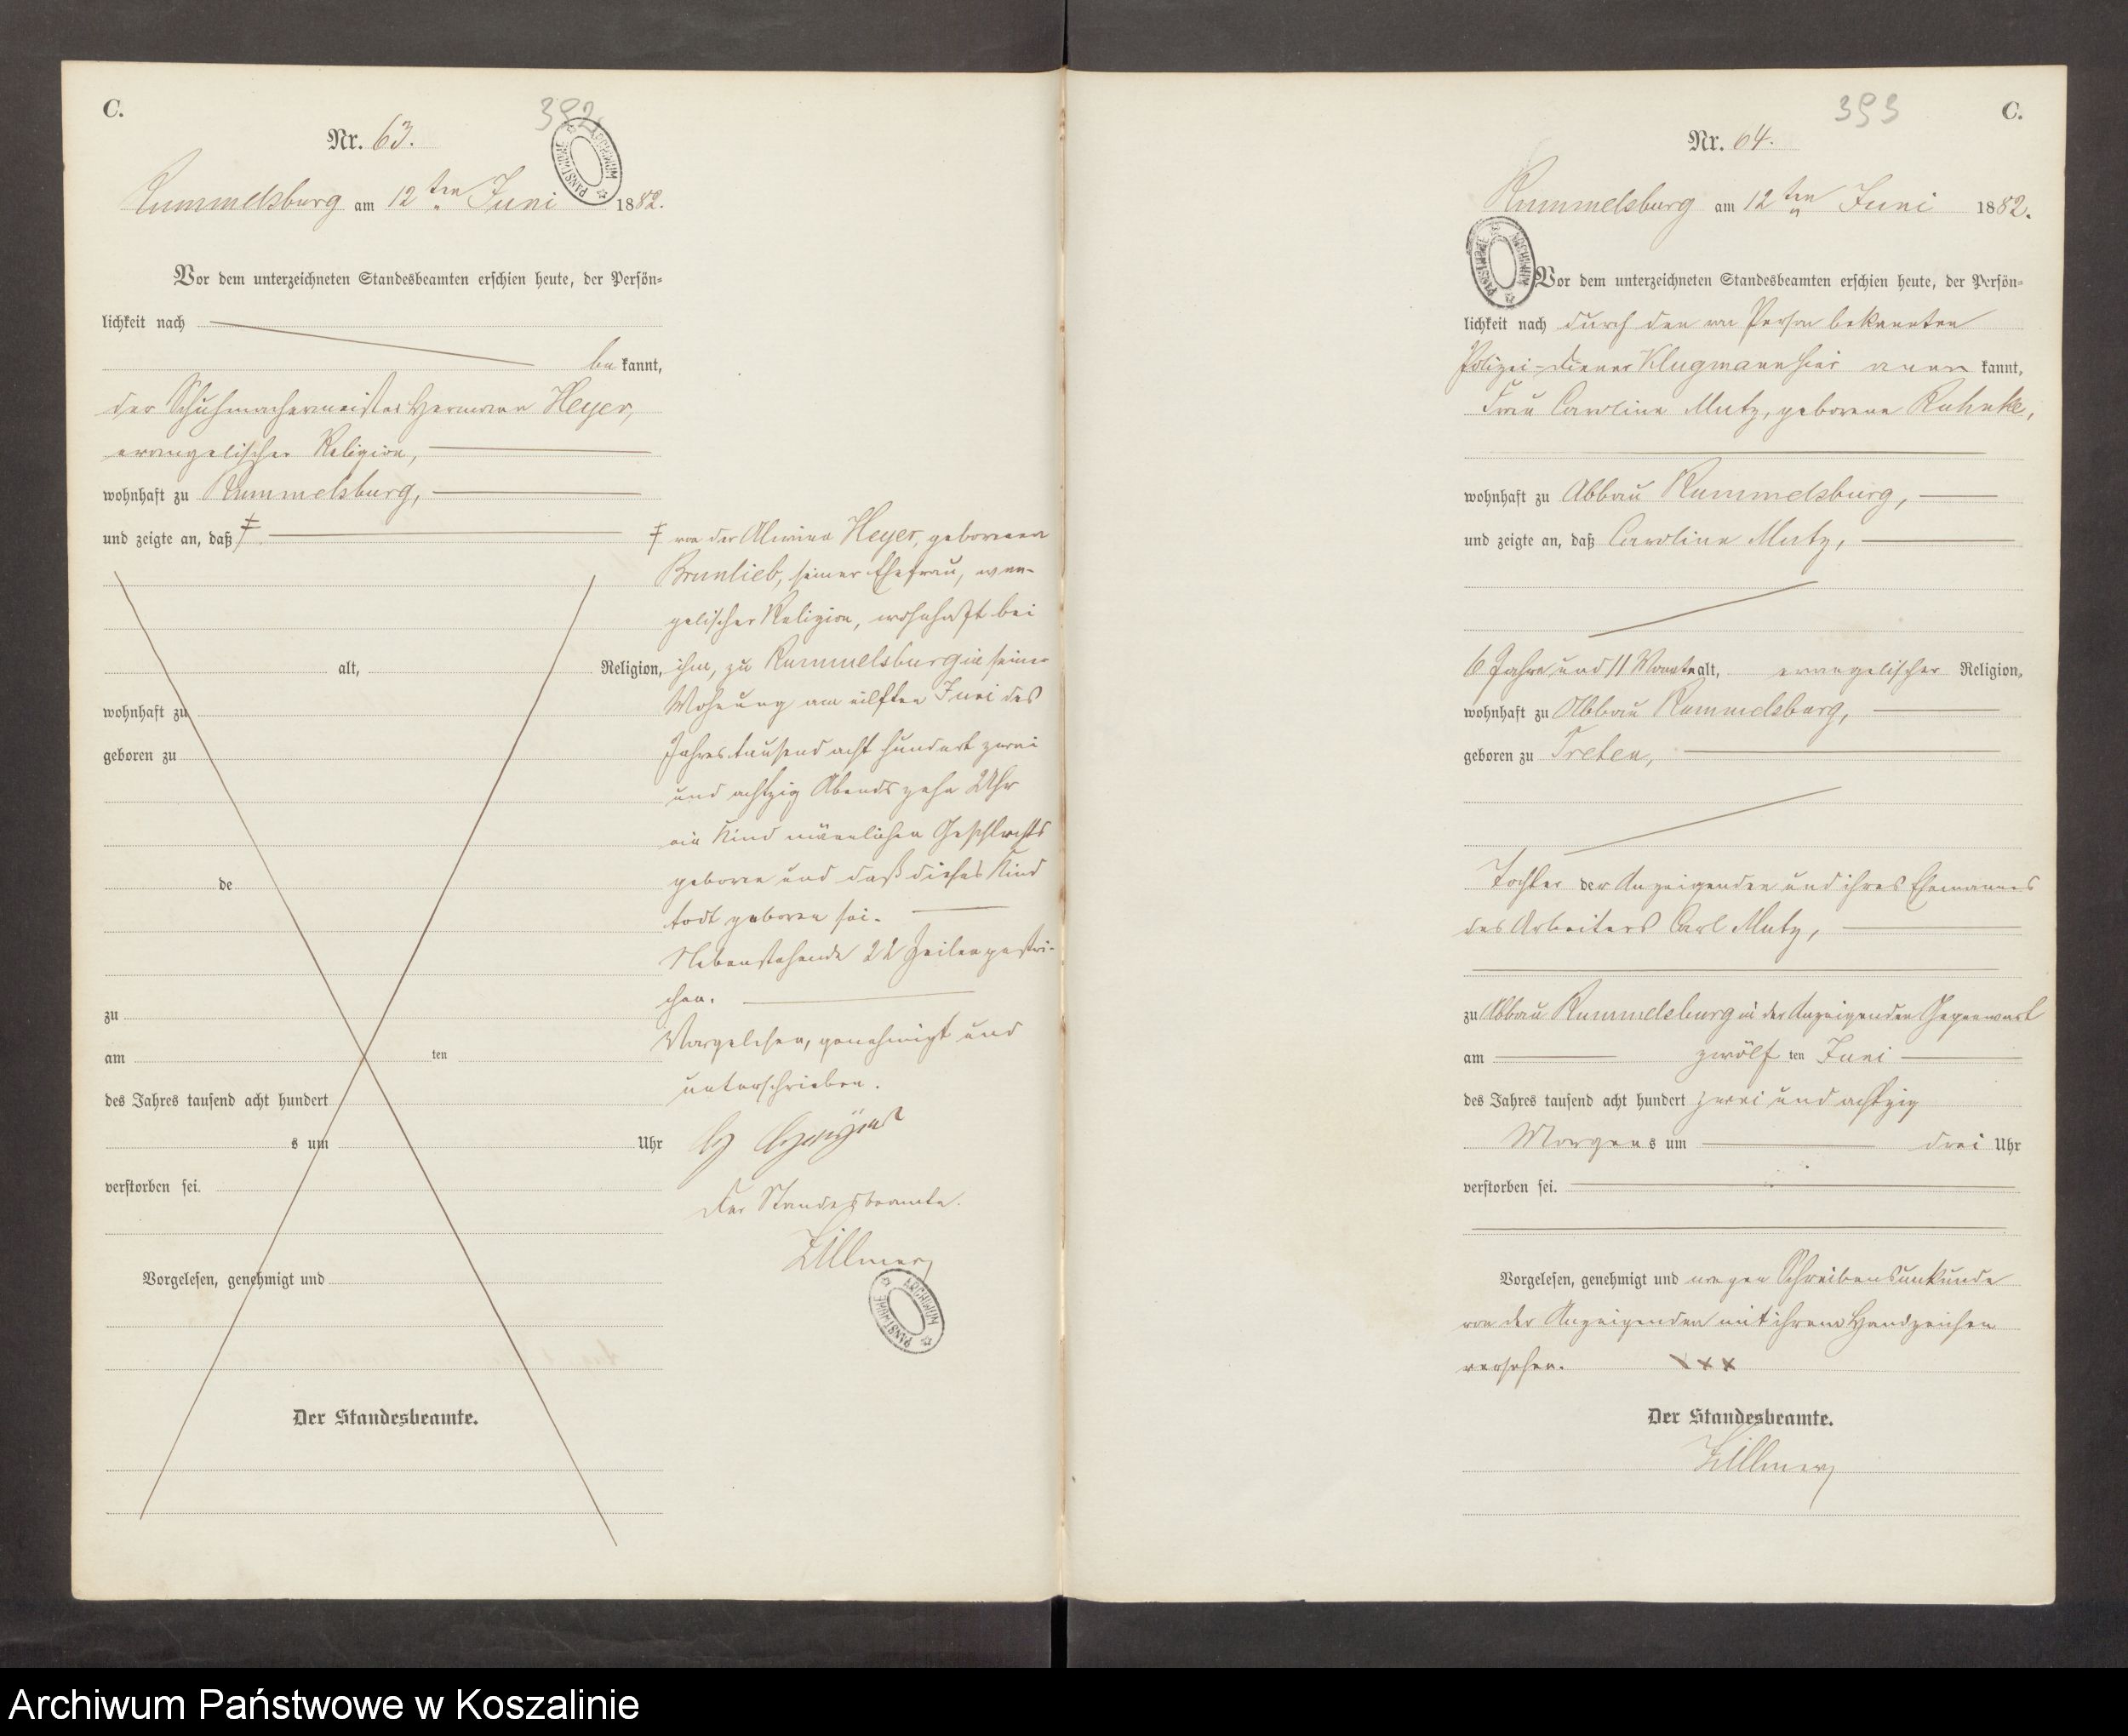 C.
392
Nr. 63.
Rummelsburg am 12ten Juni 1882.
ARCHIWUM PAŃSTWOWE
Vor dem unterzeichneten Standesbeamten erschien heute, der Persön-
lichkeit nach
be kannt,
der Schuhmachermeister Hermann Heyer,
evangelischer Religion,
wohnhaft zu Rummelsburg,
und zeigte an, daß
alt, Religion,
wohnhaft zu
geboren zu
de
zu
am ten
des Jahres tausend acht hundert
s um Uhr
verstorben sei.
Vorgelesen, genehmigt und
Der Standesbeamte.
von der Alwine Heyer, geborenen
seiner Ehefrau, evan-
gelischer Religion, wohnhaft bei
ihm, zu Rummelsburg in seiner
Wohnung am eilften Juni des
Jahres tausend acht hundert zwei
und achtzig Abends zehn Uhr
ein Kind männlichen Geschlechts
geboren und daß dieses Kind
todt geboren sei.
Nebenstehende 22 Zeilen gestri-
chen.
Vorgelesen, genehmigt und
unterschrieben.
Der Standesbeamte.
Zillmer
ARCHIWUM PAŃSTWOWE
393
C.
Nr. 64.
Rummelsburg am 12ten Juni 1882.
ARCHIWUM PAŃSTWOWE
Vor dem unterzeichneten Standesbeamten erschien heute, der Persön-
lichkeit nach durch den von Person bekannten
Polizei-Diener Klugmann hier aner kannt,
Frau Caroline Mutz, geborene Kuhnke,
wohnhaft zu Abbau Rummelsburg,
und zeigte an, daß Caroline Mutz,
6 Jahre und 11 Monate alt, evangelischer Religion,
wohnhaft zu Abbau Rummelsburg,
geboren zu Treten,
Tochter der Anzeigenden und ihres Ehemannes
des Arbeiters Carl Mutz,
zu Abbau Rummelsburg in der Anzeigenden Gegenwart
am zwölf ten Juni
des Jahres tausend acht hundert zwei und achtzig
Morgens um drei Uhr
verstorben sei.
Vorgelesen, genehmigt und wegen Schreibensunkunde
von der Anzeigenden mit ihrem Handzeichen
versehen. XXX
Der Standesbeamte.
Zillmer
Archiwum Państwowe w Koszalinie